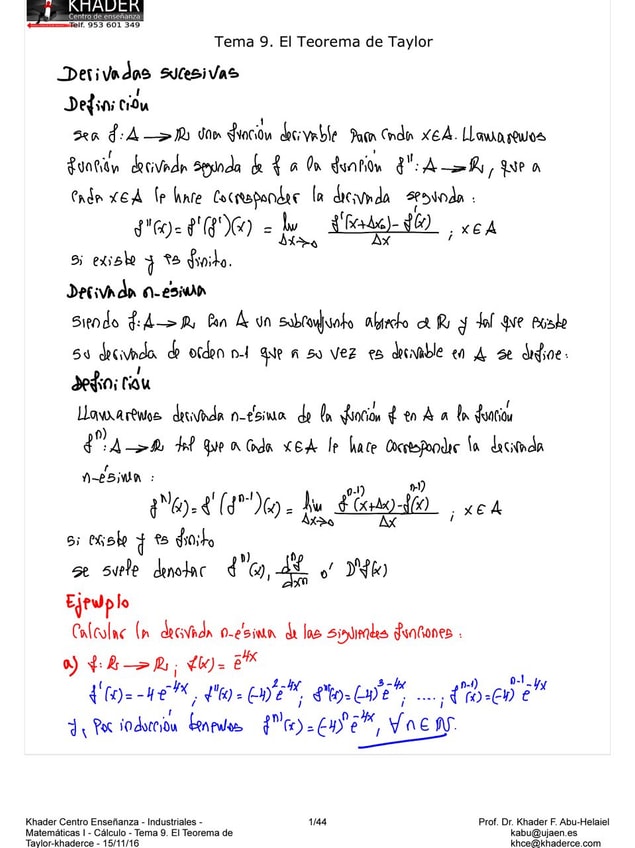 KHADER
Centro de enseñanza
Telf. 953 601 349
Tema 9. El Teorema de Taylor
Derivadas sucesivas
Definición
Sea f: A → R, una función derivable para cada x∈A. Llamaremos
función derivada segunda de f a la función f'': A → R, que a
cada x∈A le hace corresponder la derivada segunda:
f''(x) = f'(f')(x) = lim Δx→0 (f'(x+Δx₀) - f'(x)) / Δx ; x∈A
si existe y es finito.
Derivada n-ésima
Siendo f: A → R con A un subconjunto abierto de R y tal que existe
su derivada de orden n-1 que a su vez es derivable en A se define:
Definición
Llamaremos derivada n-ésima de la función f en A a la función
fⁿ⁾: A → R tal que a cada x∈A le hace corresponder la derivada
n-ésima:
fⁿ⁾(x) = f'(fⁿ⁻¹)(x) = lim Δx→0 (fⁿ⁻¹⁾(x+Δx) - fⁿ⁻¹⁾(x)) / Δx ; x∈A
si existe y es finito
se suele denotar fⁿ⁾(x), dⁿf/dxⁿ ó Dⁿf(x)
Ejemplo
Calcular la derivada n-ésima de las siguientes funciones:
a) f: R → R; f(x) = e⁻⁴ˣ
f'(x) = -4e⁻⁴ˣ; f''(x) = (-4)²e⁻⁴ˣ; f'''(x) = (-4)³e⁻⁴ˣ; ....; fⁿ⁻¹⁾(x) = (-4)ⁿ⁻¹e⁻⁴ˣ
y, por inducción tenemos fⁿ⁾(x) = (-4)ⁿe⁻⁴ˣ, ∀n∈N.
Khader Centro Enseñanza - Industriales - 1/44 Prof. Dr. Khader F. Abu-Helaiel
Matemáticas I - Cálculo - Tema 9. El Teorema de kabu@ujaen.es
Taylor-khaderce - 15/11/16 khce@khaderce.com